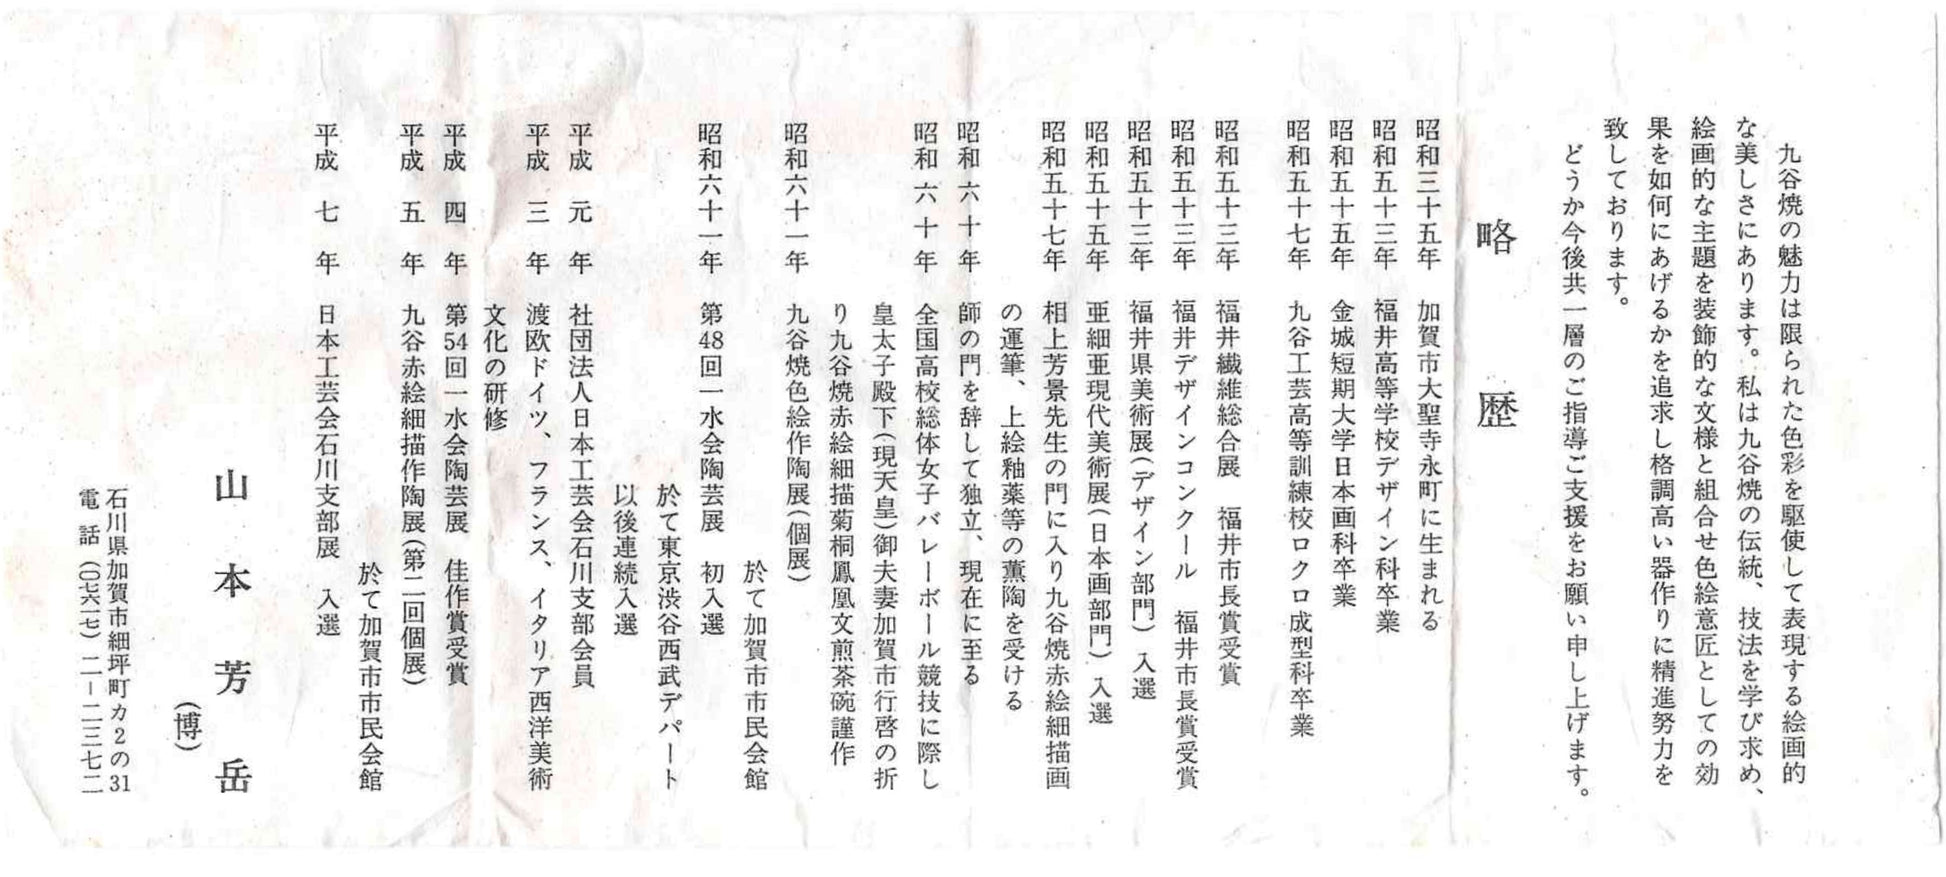 九谷焼の魅力は限られた色彩を駆使して表現する絵画的
な美しさにあります。私は九谷焼の伝統、技法を学び求め、
絵画的な主題を装飾的な文様と組合せ色絵意匠としての効
果を如何にあげるかを追求し格調高い器作りに精進努力を
致しております。
どうか今後共一層のご指導ご支援をお願い申し上げます。
略歴
昭和三十五年 加賀市大聖寺永町に生まれる
昭和五十三年 福井高等学校デザイン科卒業
昭和五十五年 金城短期大学日本画科卒業
昭和五十七年 九谷工芸高等訓練校ロクロ成型科卒業
昭和五十三年 福井繊維総合展 福井市長賞受賞
昭和五十三年 福井デザインコンクール 福井市長賞受賞
昭和五十三年 福井県美術展(デザイン部門)入選
昭和五十五年 亜細亜現代美術展(日本画部門)入選
昭和五十七年 相上芳景先生の門に入り九谷焼赤絵細描画
の運筆、上絵釉薬等の薫陶を受ける
昭和六十年 師の門を辞して独立、現在に至る
昭和六十年 全国高校総体女子バレーボール競技に際し
皇太子殿下(現天皇)御夫妻加賀市行啓の折
り九谷焼赤絵細描菊桐鳳凰文煎茶碗謹作
昭和六十一年 九谷焼色絵作陶展(個展)
於て加賀市市民会館
昭和六十一年 第48回一水会陶芸展 初入選
於て東京渋谷西武デパート
以後連続入選
平成元年 社団法人日本工芸会石川支部会員
平成三年 渡欧ドイツ、フランス、イタリア西洋美術
文化の研修
平成四年 第54回一水会陶芸展 佳作賞受賞
平成五年 九谷赤絵細描作陶展(第二回個展)
於て加賀市市民会館
平成七年 日本工芸会石川支部展 入選
山本芳岳
(博)
石川県加賀市細坪町カ2の31
電話(〇七六一七)二−二三七二